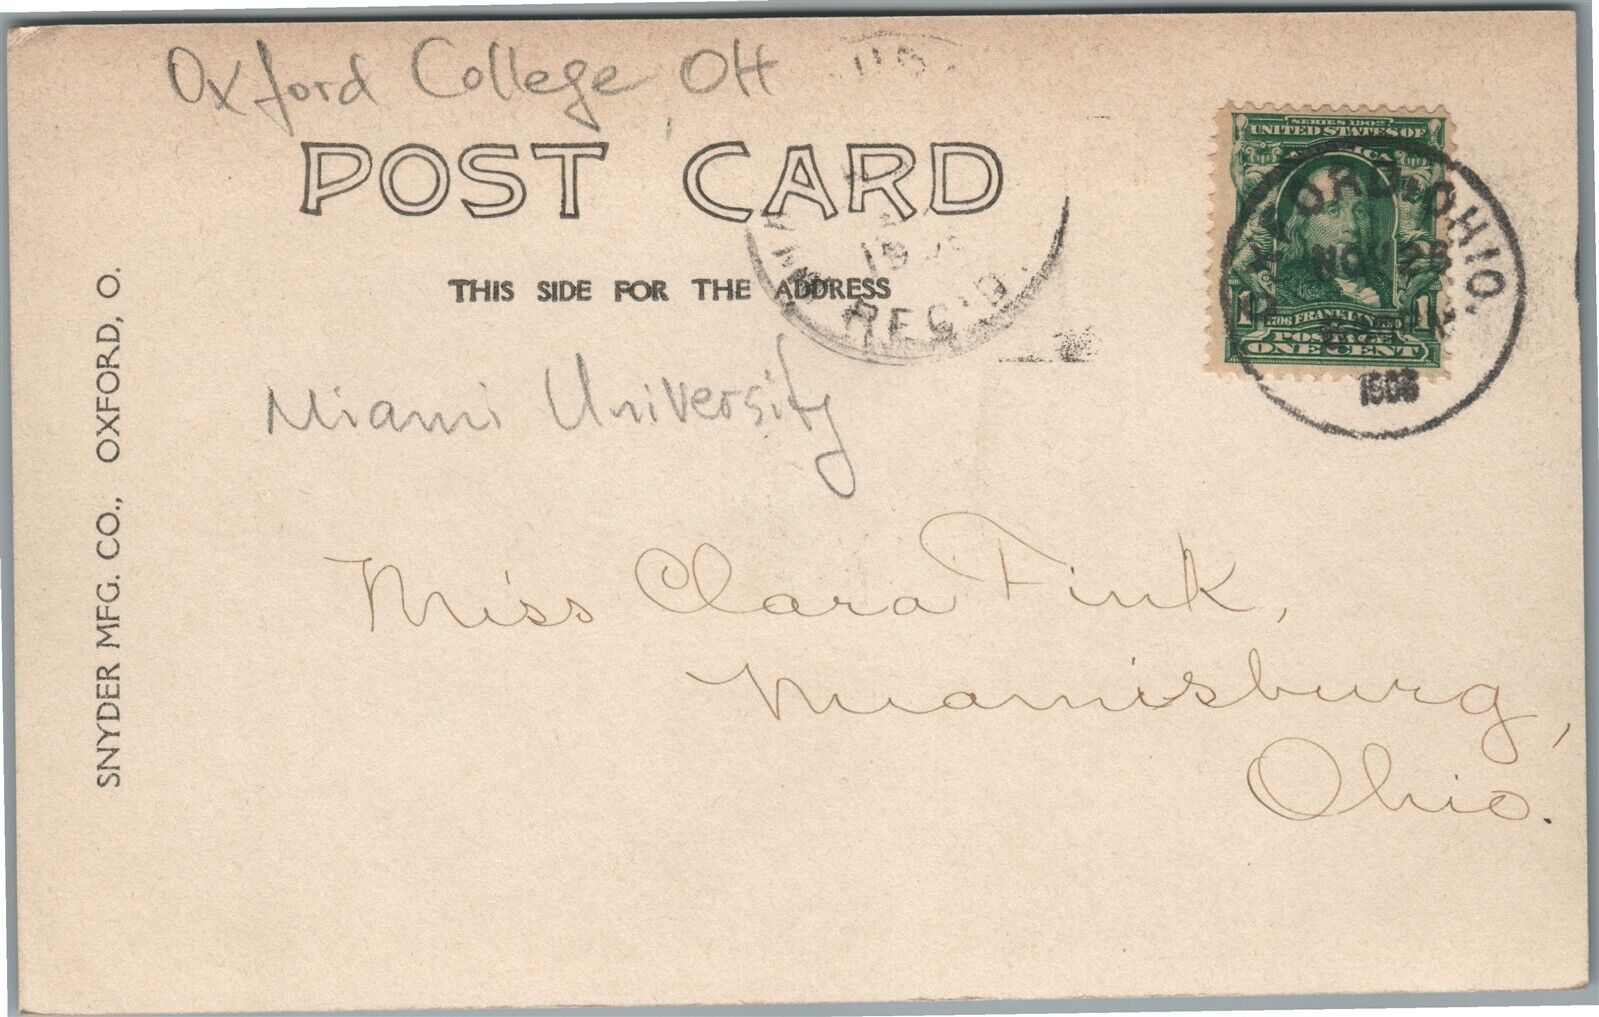 Oxford College, OH
POST CARD
THIS SIDE FOR THE ADDRESS
SERIES 1902
UNITED STATES OF
AMERICA
FRANKLIN
POSTAGE
1 ONE CENT 1
OXFORD, OHIO.
NOV 25
REC'D.
Miami University
Miss Clara Fink,
Miamisburg,
Ohio.
SNYDER MFG. CO., OXFORD, O.